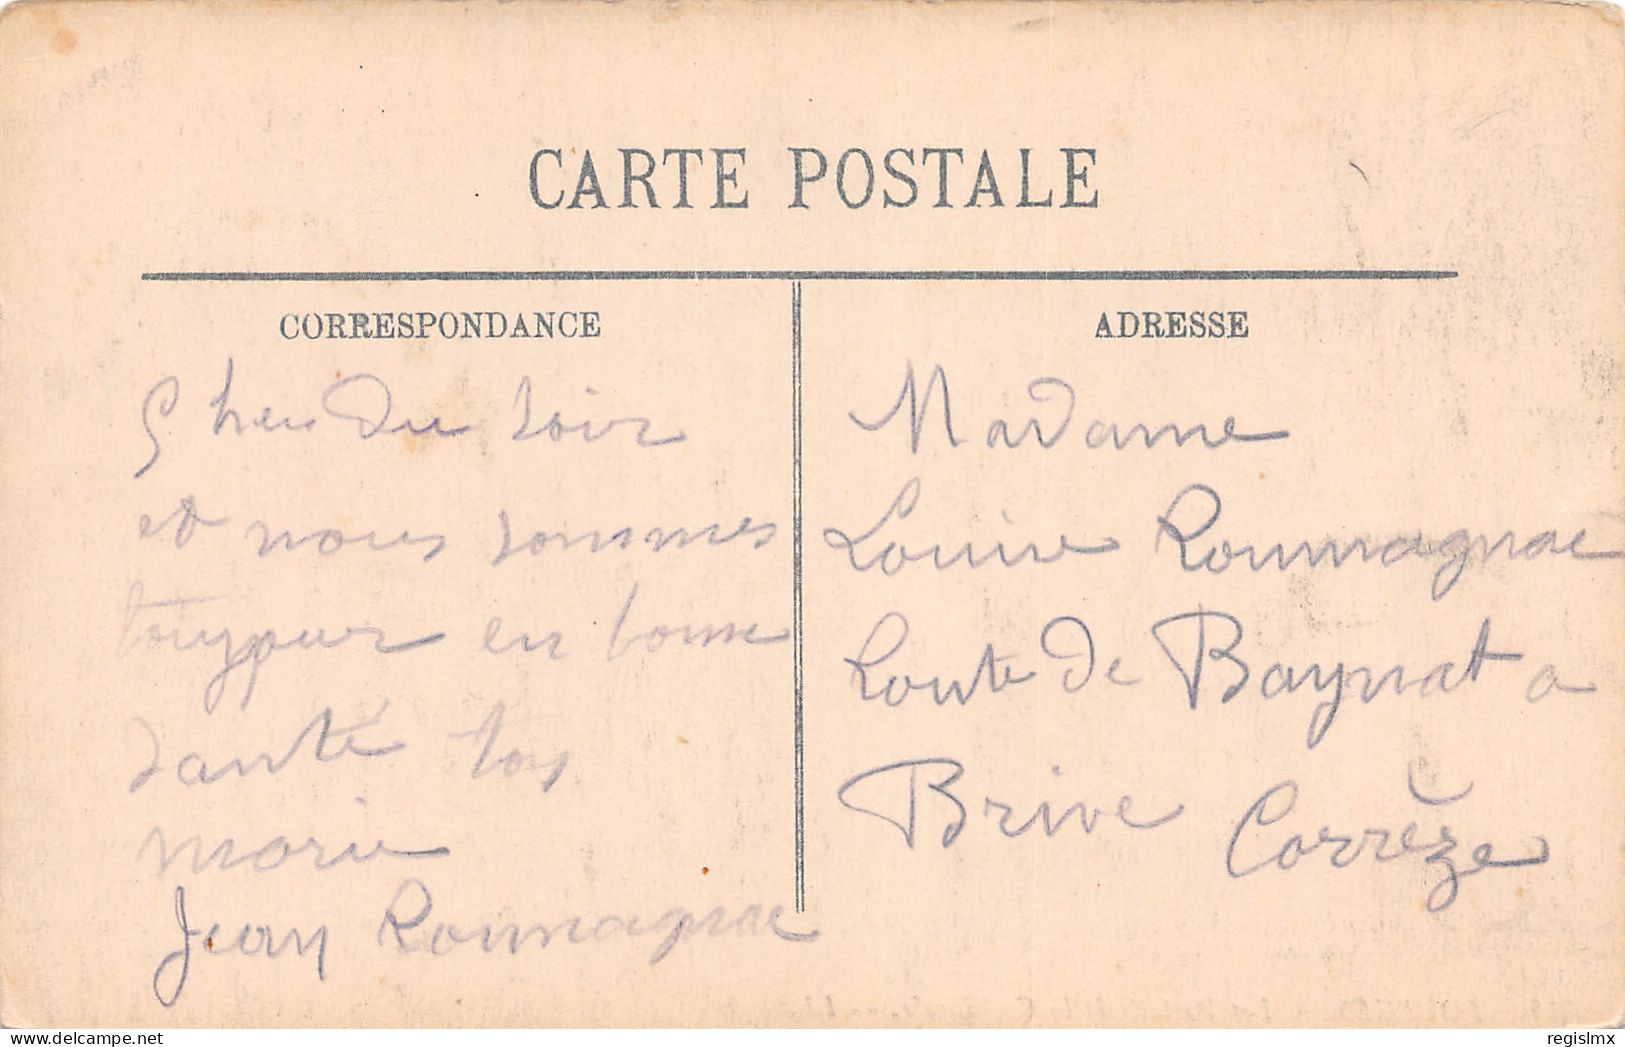 CARTE POSTALE
CORRESPONDANCE
5 heu du soir
et nous sommes
toujour en bonne
santé ton
mari
Jean Roumagnac
ADRESSE
Madame
Louise Roumagnac
Route de Baynat a
Brive Corrèze
delcampe.net
regislmx